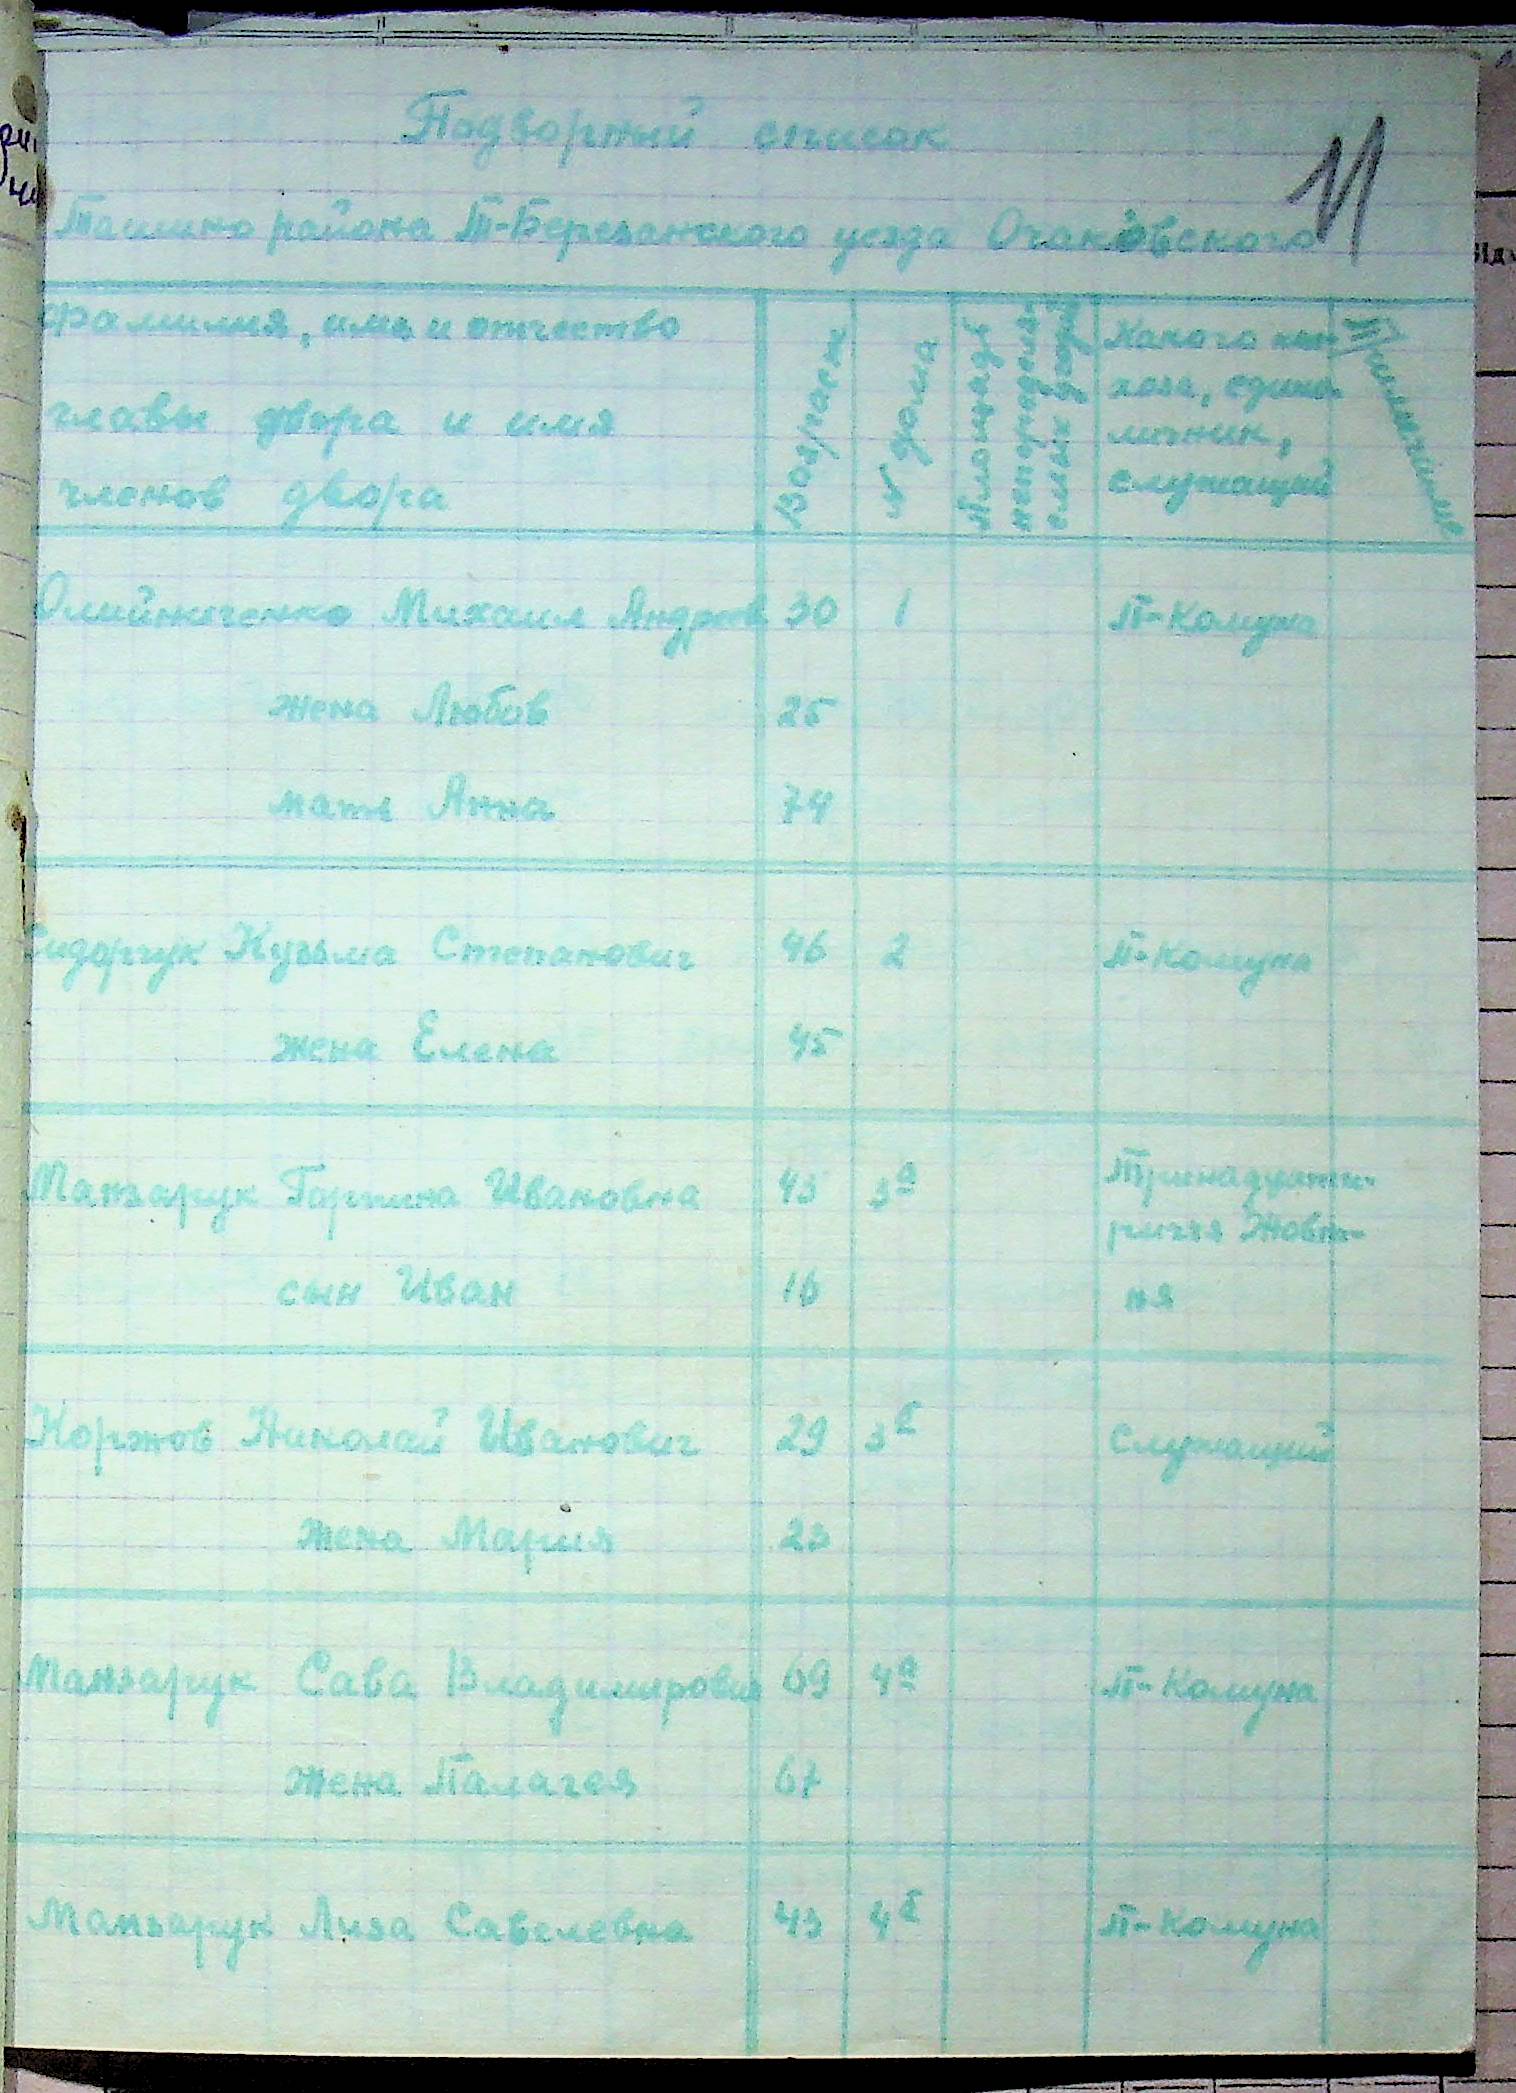 Подворный список
11
Ташино района Т-Березанского уезда Очаковского
Фамилия, имя и отчество
главы двора и имя
членов двора
Возраст
№ дома
Площадь
Какого кол-
хоза, едино-
личник,
служащий
Примечание
Олейниченко Михаил Андреев 30 1 П-Комуна
жена Любов 25
мать Анна 74
Сидорчук Кузьма Степанович 46 2 П-Комуна
жена Елена 45
Манзарук Горпина Ивановна 43 3а Тринадцяти-
риччя Жовт-
сын Иван 16 ня
Коржов Николай Иванович 29 3б Служащий
жена Мария 23
Манзарук Сава Владимирович 69 4а П-Комуна
жена Палагея 67
Манзарук Лиза Савелевна 43 4б П-Комуна